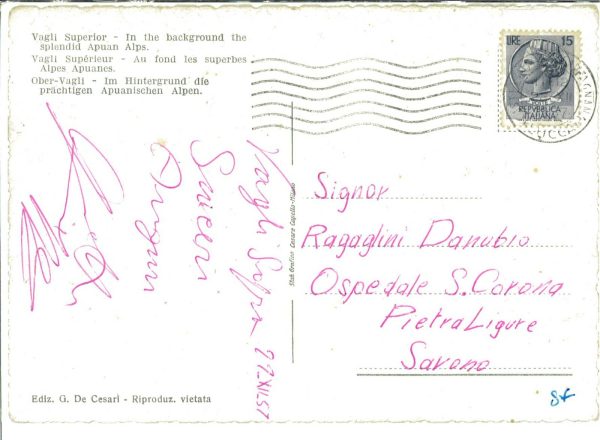 Vagli Superior - In the background the
splendid Apuan Alps.
Vagli Supérieur - Au fond les superbes
Alpes Apuanes.
Ober-Vagli - Im Hintergrund die
prächtigen Apuanischen Alpen.
LIRE 15
REPVBBLICA
ITALIANA
LUCCA
Vagli Sopra
Sinceri
Auguri
Stab. Grafico Cesare Capello - Milano
Signor
Ragaglini Danubio
Ospedale S. Corona
Pietra Ligure
Savona
Ediz. G. De Cesari - Riproduz. vietata